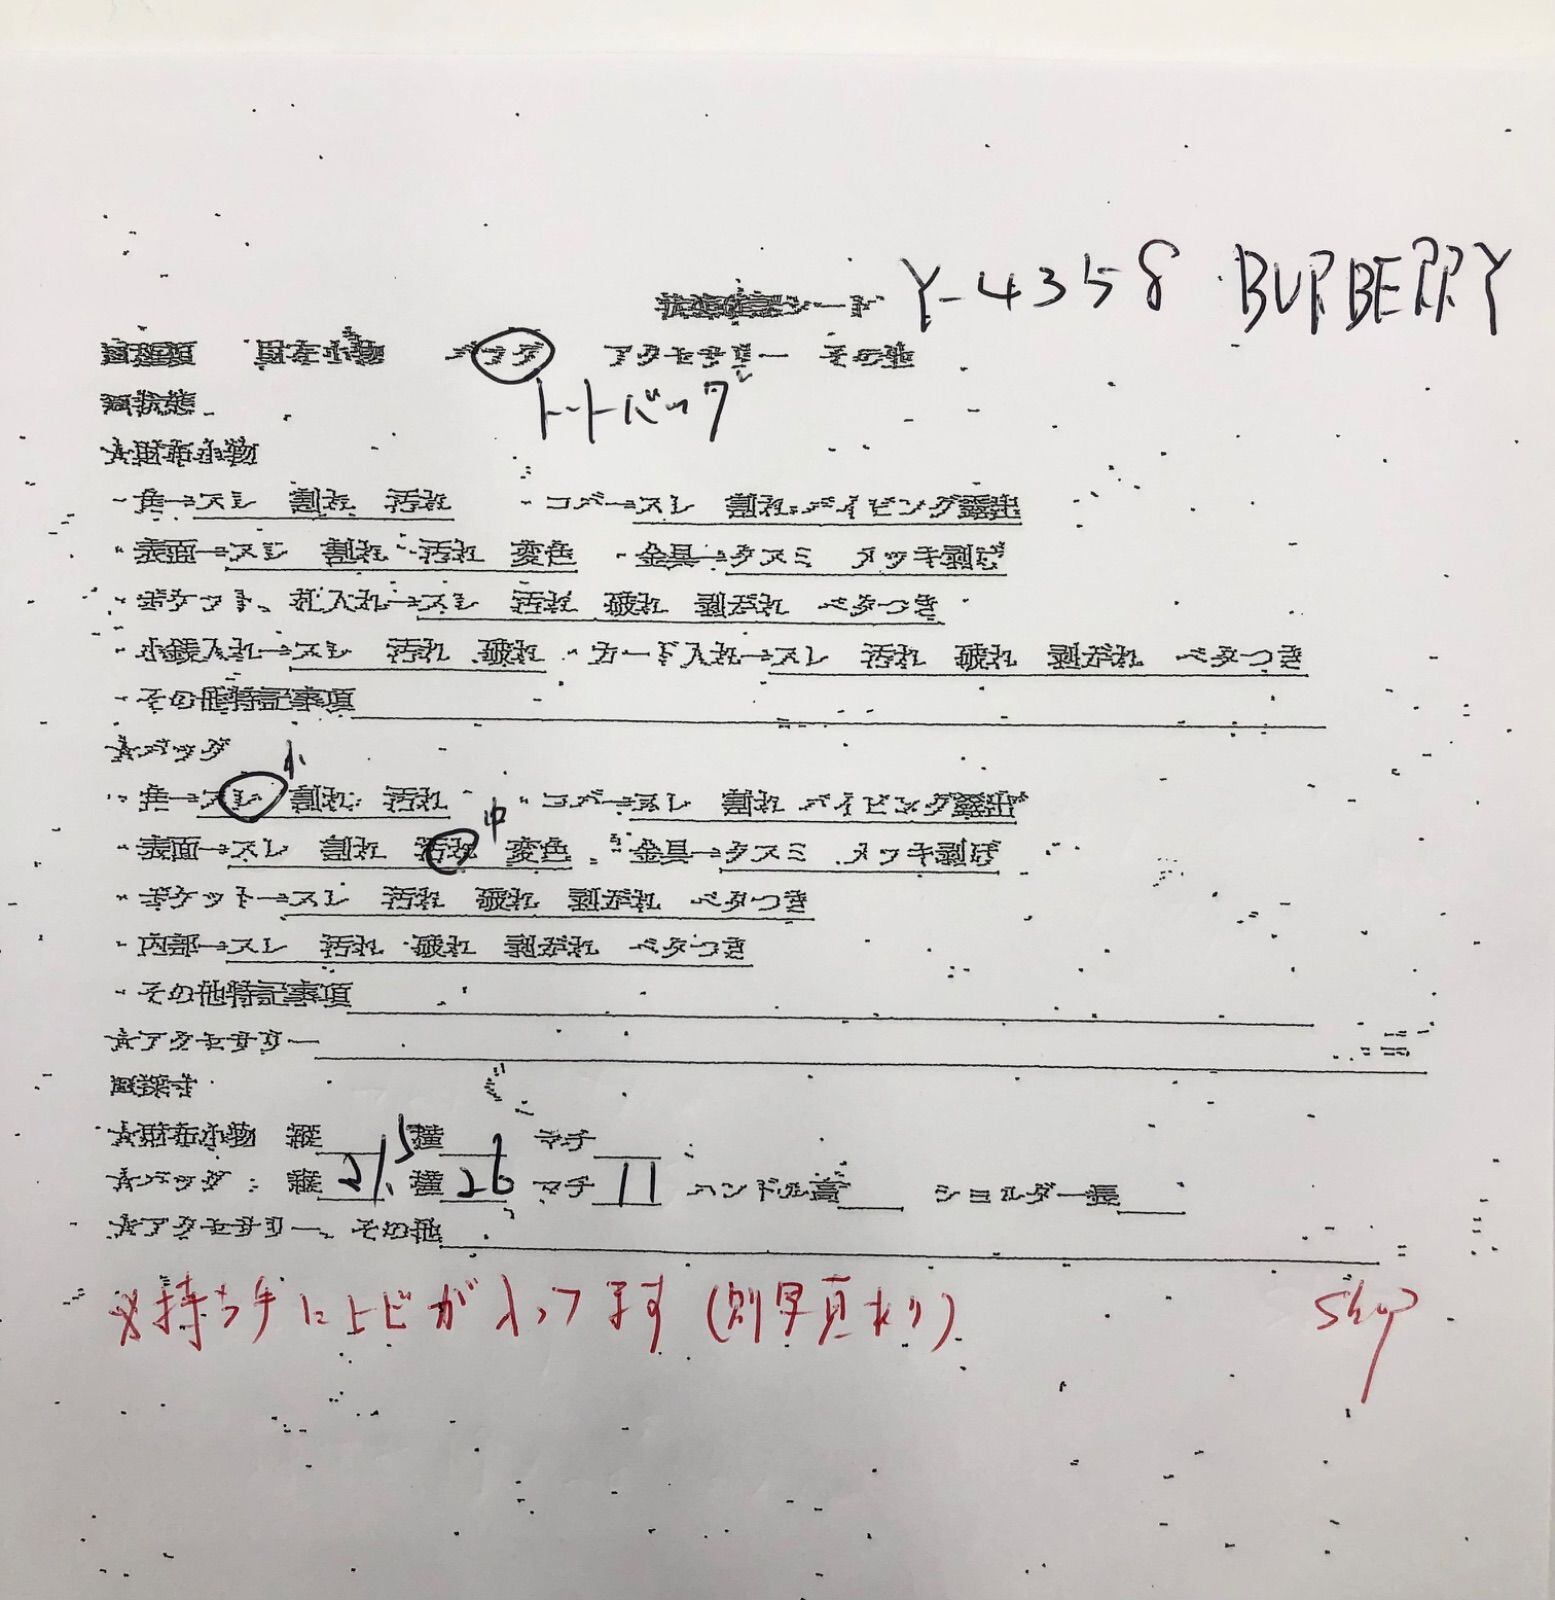 状態確認シート Y-4358 BURBERRY
財布小物 バッグ アクセサリー その他
トートバッグ
☆財布小物
・角→スレ 割れ 汚れ ・コバ→スレ 割れ パイピング露出
・表面→スレ 割れ 汚れ 変色 ・金具→クスミ メッキ剥げ
・ポケット、札入れ→スレ 汚れ 破れ 剥がれ ベタつき
・小銭入れ→スレ 汚れ 破れ ・カード入れ→スレ 汚れ 破れ 剥がれ ベタつき
・その他特記事項
☆バッグ
小
・角→スレ 割れ 汚れ ・コバ→スレ 割れ パイピング露出
中
・表面→スレ 割れ 汚れ 変色 ・金具→クスミ メッキ剥げ
・ポケット→スレ 汚れ 破れ 剥がれ ベタつき
・内部→スレ 汚れ 破れ 剥がれ ベタつき
・その他特記事項
☆アクセサリー
採寸
☆財布小物 縦 横 マチ
☆バッグ 縦 21.5 横 26 マチ 11 ハンドル高 ショルダー長
☆アクセサリー、その他
※持ち手にヒビが入ってます